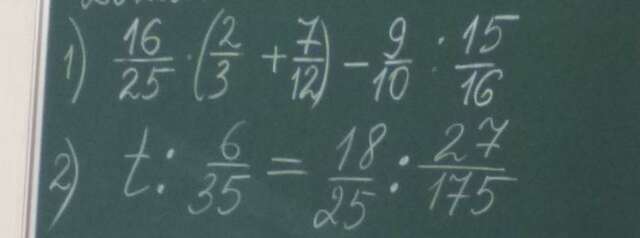 1) 16/25 · (2/3 + 7/12) - 9/10 : 15/16
2) t : 6/35 = 18/25 : 27/175